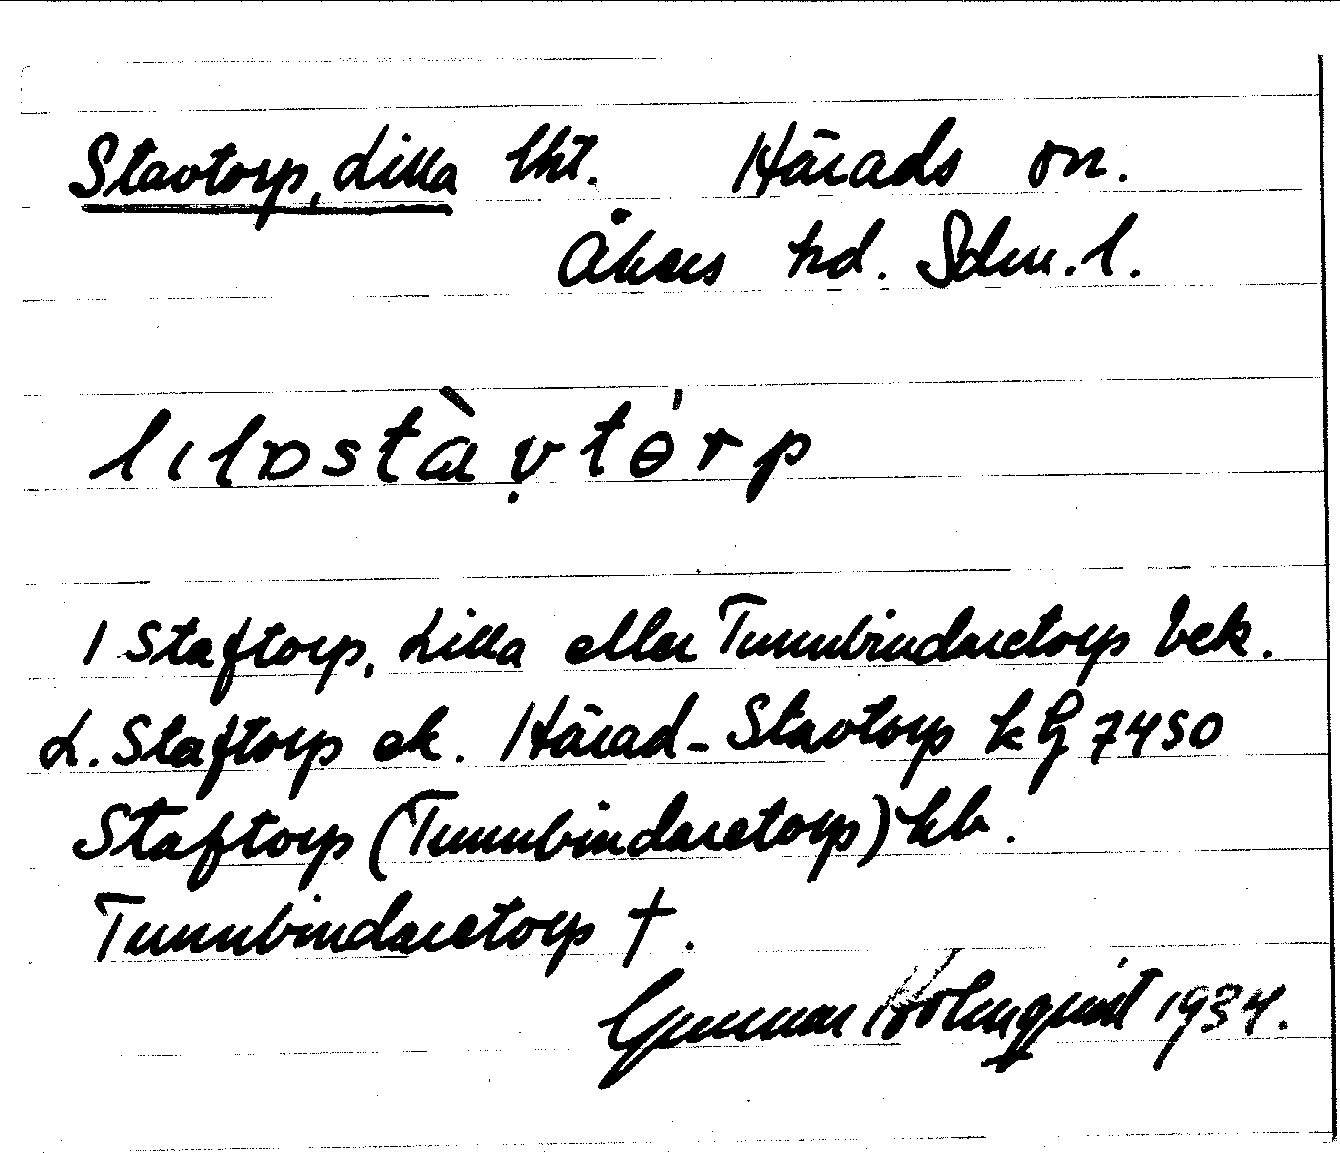 Stavtorp, Lilla lht. Härads sn.
Åkers hd. Sdm. l.
lılɒstàṿtɵ́rp
1 Staftorp, Lilla eller Tunnbindaretorp bek.
L. Staftorp ek. Härad-Stavtorp kG 7450
Staftorp (Tunnbindaretorp) kb.
Tunnbindaretorp †.
Gunnar Holmquist 1934.